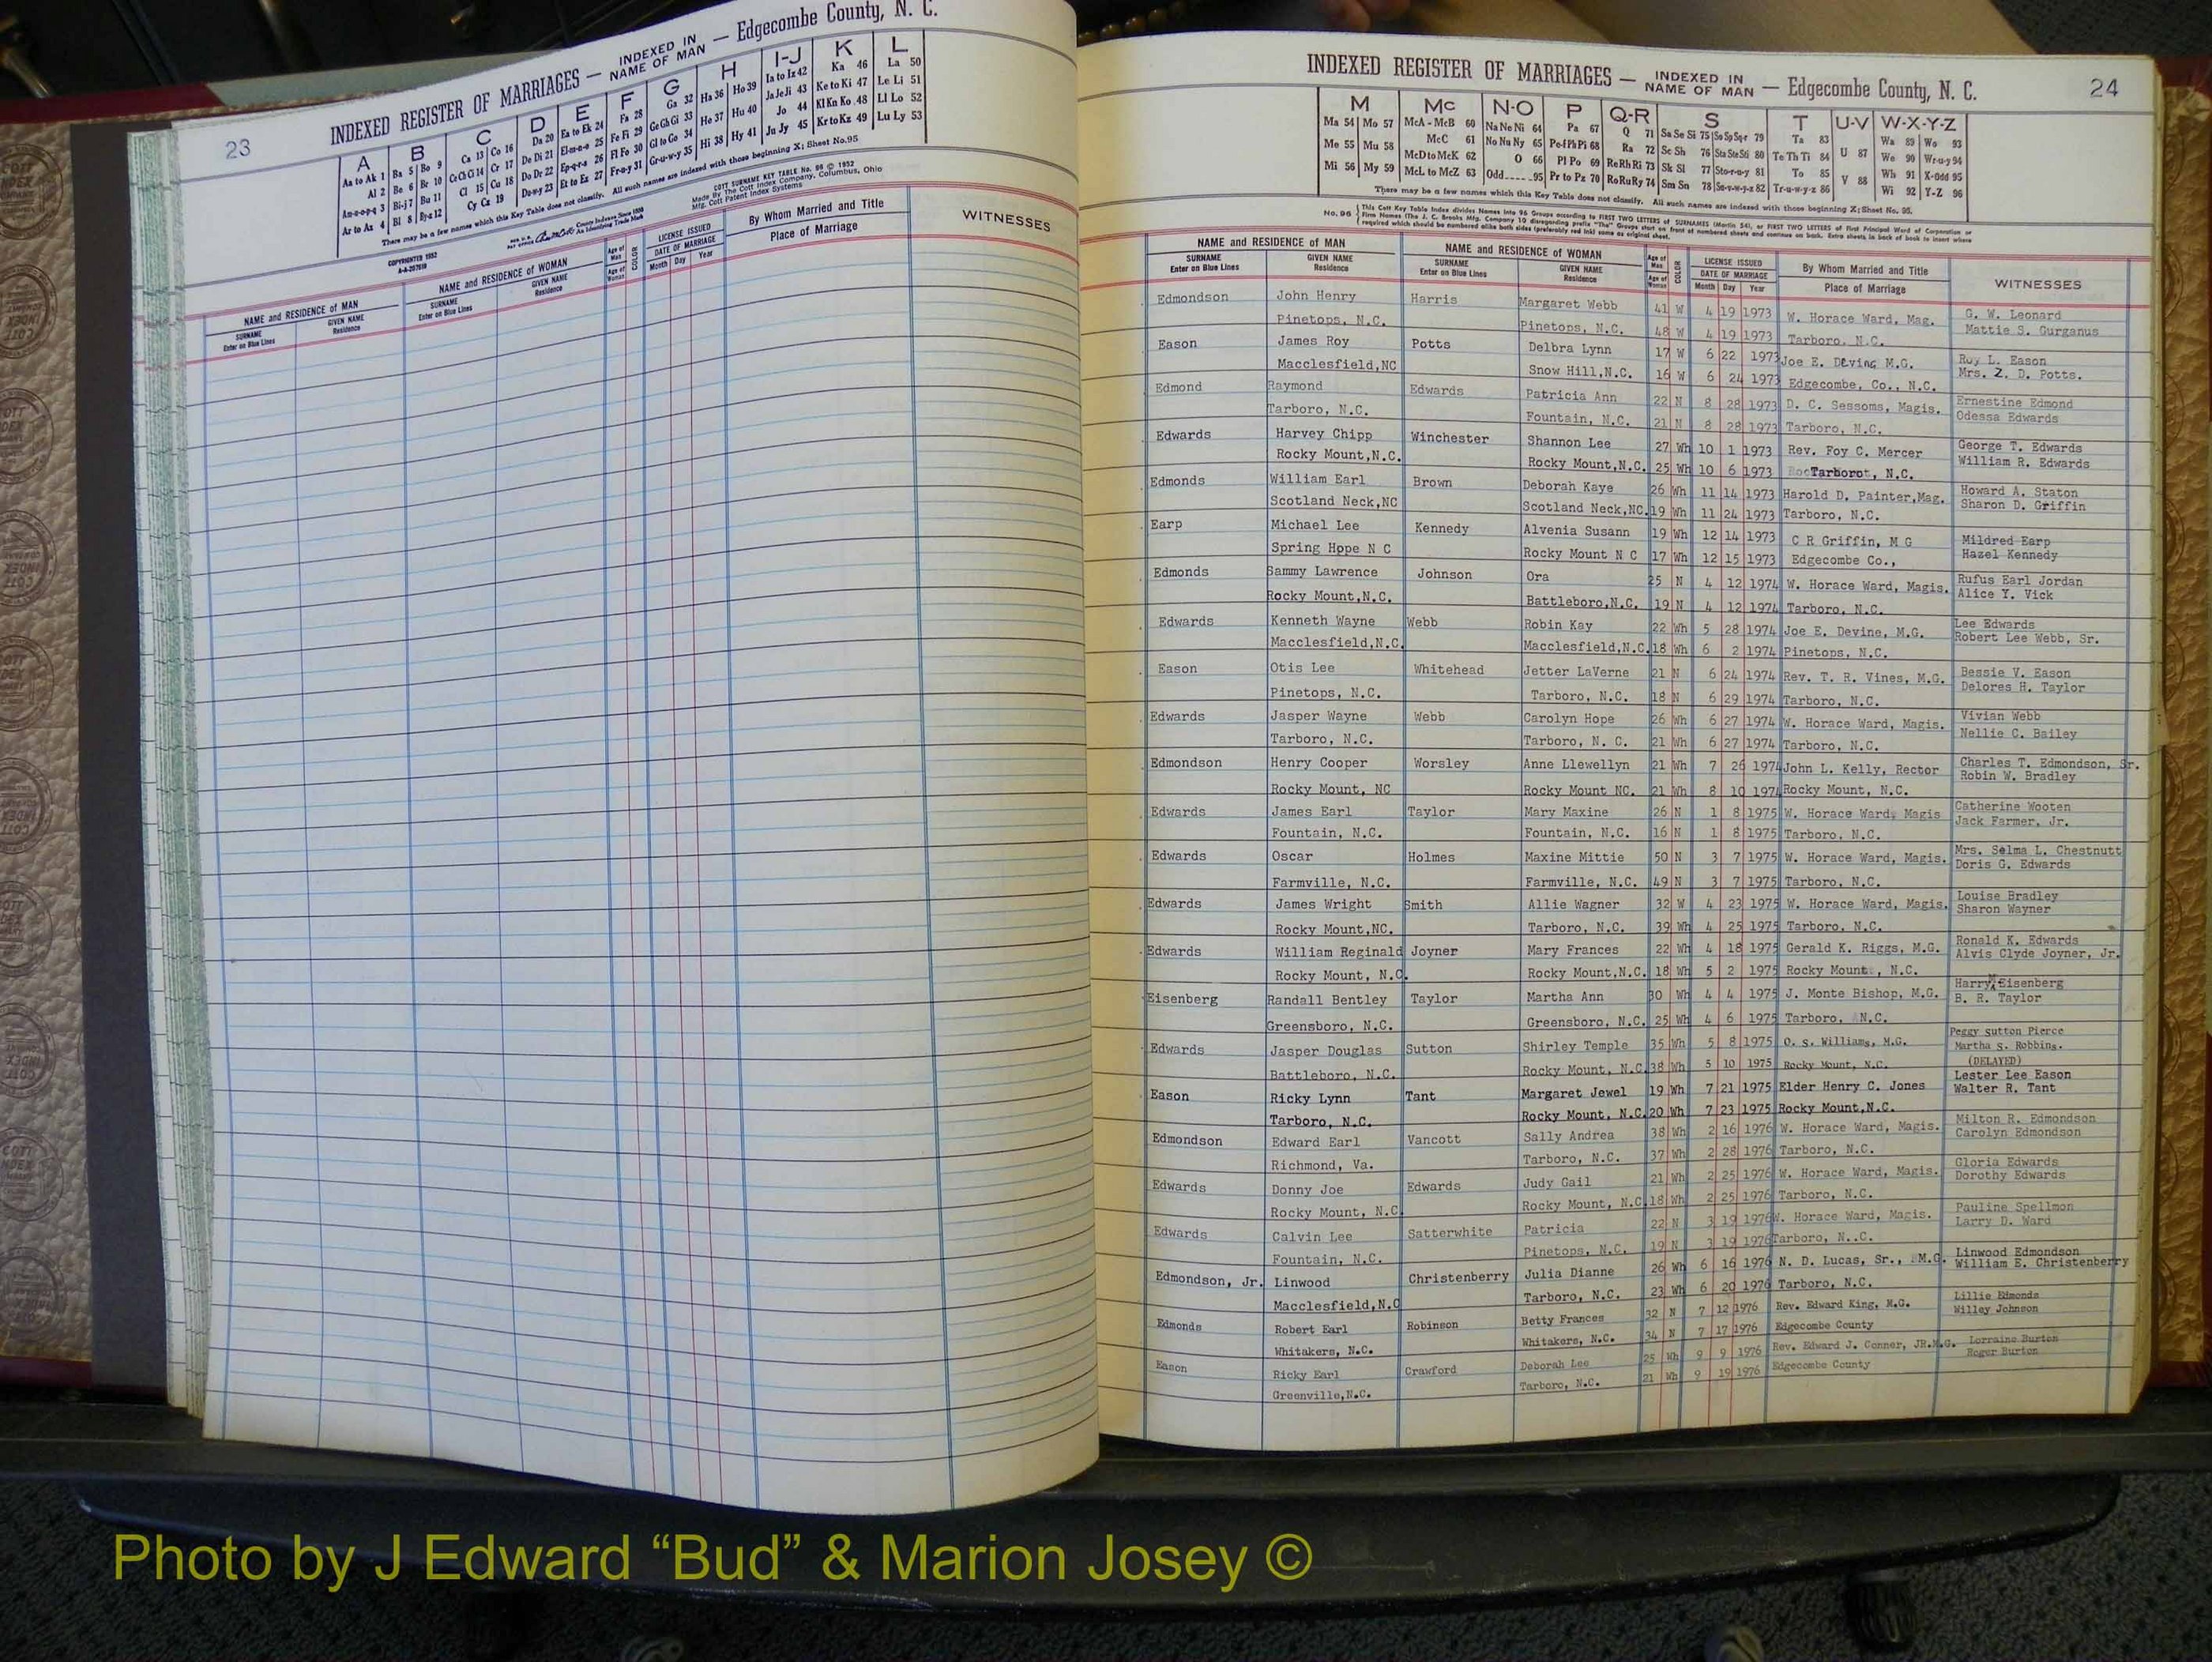 23
INDEXED REGISTER OF MARRIAGES — INDEXED IN NAME OF MAN — Edgecombe County, N. C.
A B C D E F G H I-J K L
Aa to Ak 1 Ba 5 Bo 9 Ca 13 Co 16 Da 20 Ea to Ek 24 Fa 28 Ga 32 Ha 36 Ho 39 Ia to Iz 42 Ka 46 La 50
Al 2 Be 6 Br 10 Ce Ch Ci 14 Cr 17 De Di 21 El-m-n-o 25 Fe Fi 29 Ge Gh Gi 33 He 37 Hu 40 Ja Je Ji 43 Ke to Ki 47 Le Li 51
Am-n-o-p-q 3 Bi-j 7 Bu 11 Cl 15 Cu 18 Do Dr 22 Ep-q-r-s 26 Fl Fo 30 Gl to Go 34 Hi 38 Hy 41 Jo 44 Kl Kn Ko 48 Ll Lo 52
Ar to Az 4 Bl 8 By-z 12 Cy Cz 19 Du-w-y 23 Et to Ez 27 Fr-u-y 31 Gr-u-w-y 35 Ju Jy 45 Kr to Kz 49 Lu Ly 53
There may be a few names which this Key Table does not classify. All such names are indexed with those beginning X; Sheet No. 95
COTT SURNAME KEY TABLE No. 96 © 1952
Made By The Cott Index Company, Columbus, Ohio
Mfg. Cott Patent Index Systems
COPYRIGHTED 1952
NAME and RESIDENCE OF MAN NAME and RESIDENCE OF WOMAN Age of Man COLOR LICENSE ISSUED By Whom Married and Title WITNESSES
SURNAME Enter on Blue Lines GIVEN NAME Residence SURNAME Enter on Blue Lines GIVEN NAME Residence Age of Woman DATE OF MARRIAGE Month Day Year Place of Marriage
INDEXED REGISTER OF MARRIAGES — INDEXED IN NAME OF MAN — Edgecombe County, N. C.
24
M Mc N-O P Q-R S T U-V W-X-Y-Z
Ma 54 Mo 57 McA - McB 60 Na Ne Ni 64 Pa 67 Q 71 Sa Se Si 75 So Sp Sq-r 79 Ta 83 U 87 Wa 89 Wo 93
Me 55 Mu 58 McC 61 No Nu Ny 65 Pe-f Ph Pi 68 Ra 72 Sc Sh 76 Sta Ste Sti 80 Te Th Ti 84 V 88 We 90 Wr-u-y 94
Mi 56 My 59 McD to McK 62 O 66 Pl Po 69 Re Rh Ri 73 Sk Sl 77 Sto-r-u-y 81 To 85 Wh 91 X-Odd 95
McL to McZ 63 Odd 95 Pr to Pz 70 Ro Ru Ry 74 Sm Sn 78 Su-v-w-y-z 82 Tr-u-w-y-z 86 Wi 92 Y-Z 96
There may be a few names which this Key Table does not classify. All such names are indexed with those beginning X; Sheet No. 95.
No. 96 This Cott Key Table Index divides Names into 96 Groups according to FIRST TWO LETTERS of SURNAMES (Martin 54), or FIRST TWO LETTERS of First Principal Word of Corporation or
Firm Names (The J. C. Brooks Mfg. Company 10 disregarding prefix "The" Groups start on front of numbered sheets and continue on back. Extra sheets in back of book to insert where
required which should be numbered alike both sides (preferably red ink) same as original sheet.
NAME and RESIDENCE OF MAN NAME and RESIDENCE OF WOMAN Age of Man COLOR LICENSE ISSUED By Whom Married and Title WITNESSES
SURNAME Enter on Blue Lines GIVEN NAME Residence SURNAME Enter on Blue Lines GIVEN NAME Residence Age of Woman DATE OF MARRIAGE Month Day Year Place of Marriage
Edmondson John Henry Harris Margaret Webb 41 W 4 19 1973 W. Horace Ward, Mag. G. W. Leonard
Pinetops, N.C. Pinetops, N.C. 48 W 4 19 1973 Tarboro, N.C. Mattie S. Gurganus
Eason James Roy Potts Delbra Lynn 17 W 6 22 1973 Joe E. Devine M.G. Roy L. Eason
Macclesfield,NC Snow Hill,N.C. 16 W 6 24 1973 Edgecombe, Co., N.C. Mrs. Z. D. Potts.
Edmond Raymond Edwards Patricia Ann 22 N 8 28 1973 D. C. Sessoms, Magis. Ernestine Edmond
Tarboro, N.C. Fountain, N.C. 21 N 8 28 1973 Tarboro, N.C. Odessa Edwards
Edwards Harvey Chipp Winchester Shannon Lee 27 Wh 10 1 1973 Rev. Foy C. Mercer George T. Edwards
Rocky Mount,N.C. Rocky Mount,N.C. 25 Wh 10 6 1973 Tarboro, N.C. William R. Edwards
Edmonds William Earl Brown Deborah Kaye 26 Wh 11 14 1973 Harold D. Painter,Mag. Howard A. Staton
Scotland Neck,NC Scotland Neck,NC. 19 Wh 11 24 1973 Tarboro, N.C. Sharon D. Griffin
Earp Michael Lee Kennedy Alvenia Susann 19 Wh 12 14 1973 C R Griffin, M G Mildred Earp
Spring Hope N C Rocky Mount N C 17 Wh 12 15 1973 Edgecombe Co., Hazel Kennedy
Edmonds Sammy Lawrence Johnson Ora 25 N 4 12 1974 W. Horace Ward, Magis. Rufus Earl Jordan
Rocky Mount,N.C. Battleboro,N.C. 19 N 4 12 1974 Tarboro, N.C. Alice Y. Vick
Edwards Kenneth Wayne Webb Robin Kay 22 Wh 5 28 1974 Joe E. Devine, M.G. Lee Edwards
Macclesfield,N.C. Macclesfield,N.C. 18 Wh 6 2 1974 Pinetops, N.C. Robert Lee Webb, Sr.
Eason Otis Lee Whitehead Jetter LaVerne 21 N 6 24 1974 Rev. T. R. Vines, M.G. Bessie V. Eason
Pinetops, N.C. Tarboro, N.C. 18 N 6 29 1974 Tarboro, N.C. Delores H. Taylor
Edwards Jasper Wayne Webb Carolyn Hope 26 Wh 6 27 1974 W. Horace Ward, Magis. Vivian Webb
Tarboro, N.C. Tarboro, N. C. 21 Wh 6 27 1974 Tarboro, N.C. Nellie C. Bailey
Edmondson Henry Cooper Worsley Anne Llewellyn 21 Wh 7 26 1974 John L. Kelly, Rector Charles T. Edmondson, Sr.
Rocky Mount, NC Rocky Mount NC. 21 Wh 8 10 1974 Rocky Mount, N.C. Robin W. Bradley
Edwards James Earl Taylor Mary Maxine 26 N 1 8 1975 W. Horace Ward, Magis Catherine Wooten
Fountain, N.C. Fountain, N.C. 16 N 1 8 1975 Tarboro, N.C. Jack Farmer, Jr.
Edwards Oscar Holmes Maxine Mittie 50 N 3 7 1975 W. Horace Ward, Magis. Mrs. Selma L. Chestnutt
Farmville, N.C. Farmville, N.C. 49 N 3 7 1975 Tarboro, N.C. Doris G. Edwards
Edwards James Wright Smith Allie Wagner 32 W 4 23 1975 W. Horace Ward, Magis. Louise Bradley
Rocky Mount,NC. Tarboro, N.C. 39 Wh 4 25 1975 Tarboro, N.C. Sharon Wayner
Edwards William Reginald Joyner Mary Frances 22 Wh 4 18 1975 Gerald K. Riggs, M.G. Ronald K. Edwards
Rocky Mount, N.C. Rocky Mount,N.C. 18 Wh 5 2 1975 Rocky Mount, N.C. Alvis Clyde Joyner, Jr.
Eisenberg Randall Bentley Taylor Martha Ann 30 Wh 4 4 1975 J. Monte Bishop, M.G. Harry Eisenberg
Greensboro, N.C. Greensboro, N.C. 25 Wh 4 6 1975 Tarboro, N.C. B. R. Taylor
Edwards Jasper Douglas Sutton Shirley Temple 35 Wh 5 8 1975 O. S. Williams, M.G. Peggy Sutton Pierce
Martha S. Robbins.
Battleboro, N.C. Rocky Mount, N.C. 38 Wh 5 10 1975 Rocky Mount, N.C. (DELAYED)
Eason Ricky Lynn Tant Margaret Jewel 19 Wh 7 21 1975 Elder Henry C. Jones Lester Lee Eason
Tarboro, N.C. Rocky Mount, N.C. 20 Wh 7 23 1975 Rocky Mount,N.C. Walter R. Tant
Edmondson Edward Earl Vancott Sally Andrea 38 Wh 2 16 1976 W. Horace Ward, Magis. Milton R. Edmondson
Richmond, Va. Tarboro, N.C. 37 Wh 2 28 1976 Tarboro, N.C. Carolyn Edmondson
Edwards Donny Joe Edwards Judy Gail 21 Wh 2 25 1976 W. Horace Ward, Magis. Gloria Edwards
Rocky Mount, N.C Rocky Mount, N.C 18 Wh 2 25 1976 Tarboro, N.C. Dorothy Edwards
Edwards Calvin Lee Satterwhite Patricia 22 N 3 19 1976 W. Horace Ward, Magis. Pauline Spellmon
Fountain, N.C. Pinetops, N.C. 19 N 3 19 1976 Tarboro, N..C. Larry D. Ward
Edmondson, Jr. Linwood Christenberry Julia Dianne 26 Wh 6 16 1976 N. D. Lucas, Sr., M.G. Linwood Edmondson
Macclesfield,N.C Tarboro, N.C. 23 Wh 6 20 1976 Tarboro, N.C. William E. Christenberry
Edmonds Robert Earl Robinson Betty Frances 32 N 7 12 1976 Rev. Edward King, M.G. Lillie Edmonds
Whitakers, N.C. Whitakers, N.C. 34 N 7 17 1976 Edgecombe County Willey Johnson
Eason Ricky Earl Crawford Deborah Lee 25 Wh 9 9 1976 Rev. Edward J. Conner, JR.M.G. Lorraine Burton
Greenville,N.C. Tarboro, N.C. 21 Wh 9 19 1976 Edgecombe County Roger Burton
Photo by J Edward “Bud” & Marion Josey ©